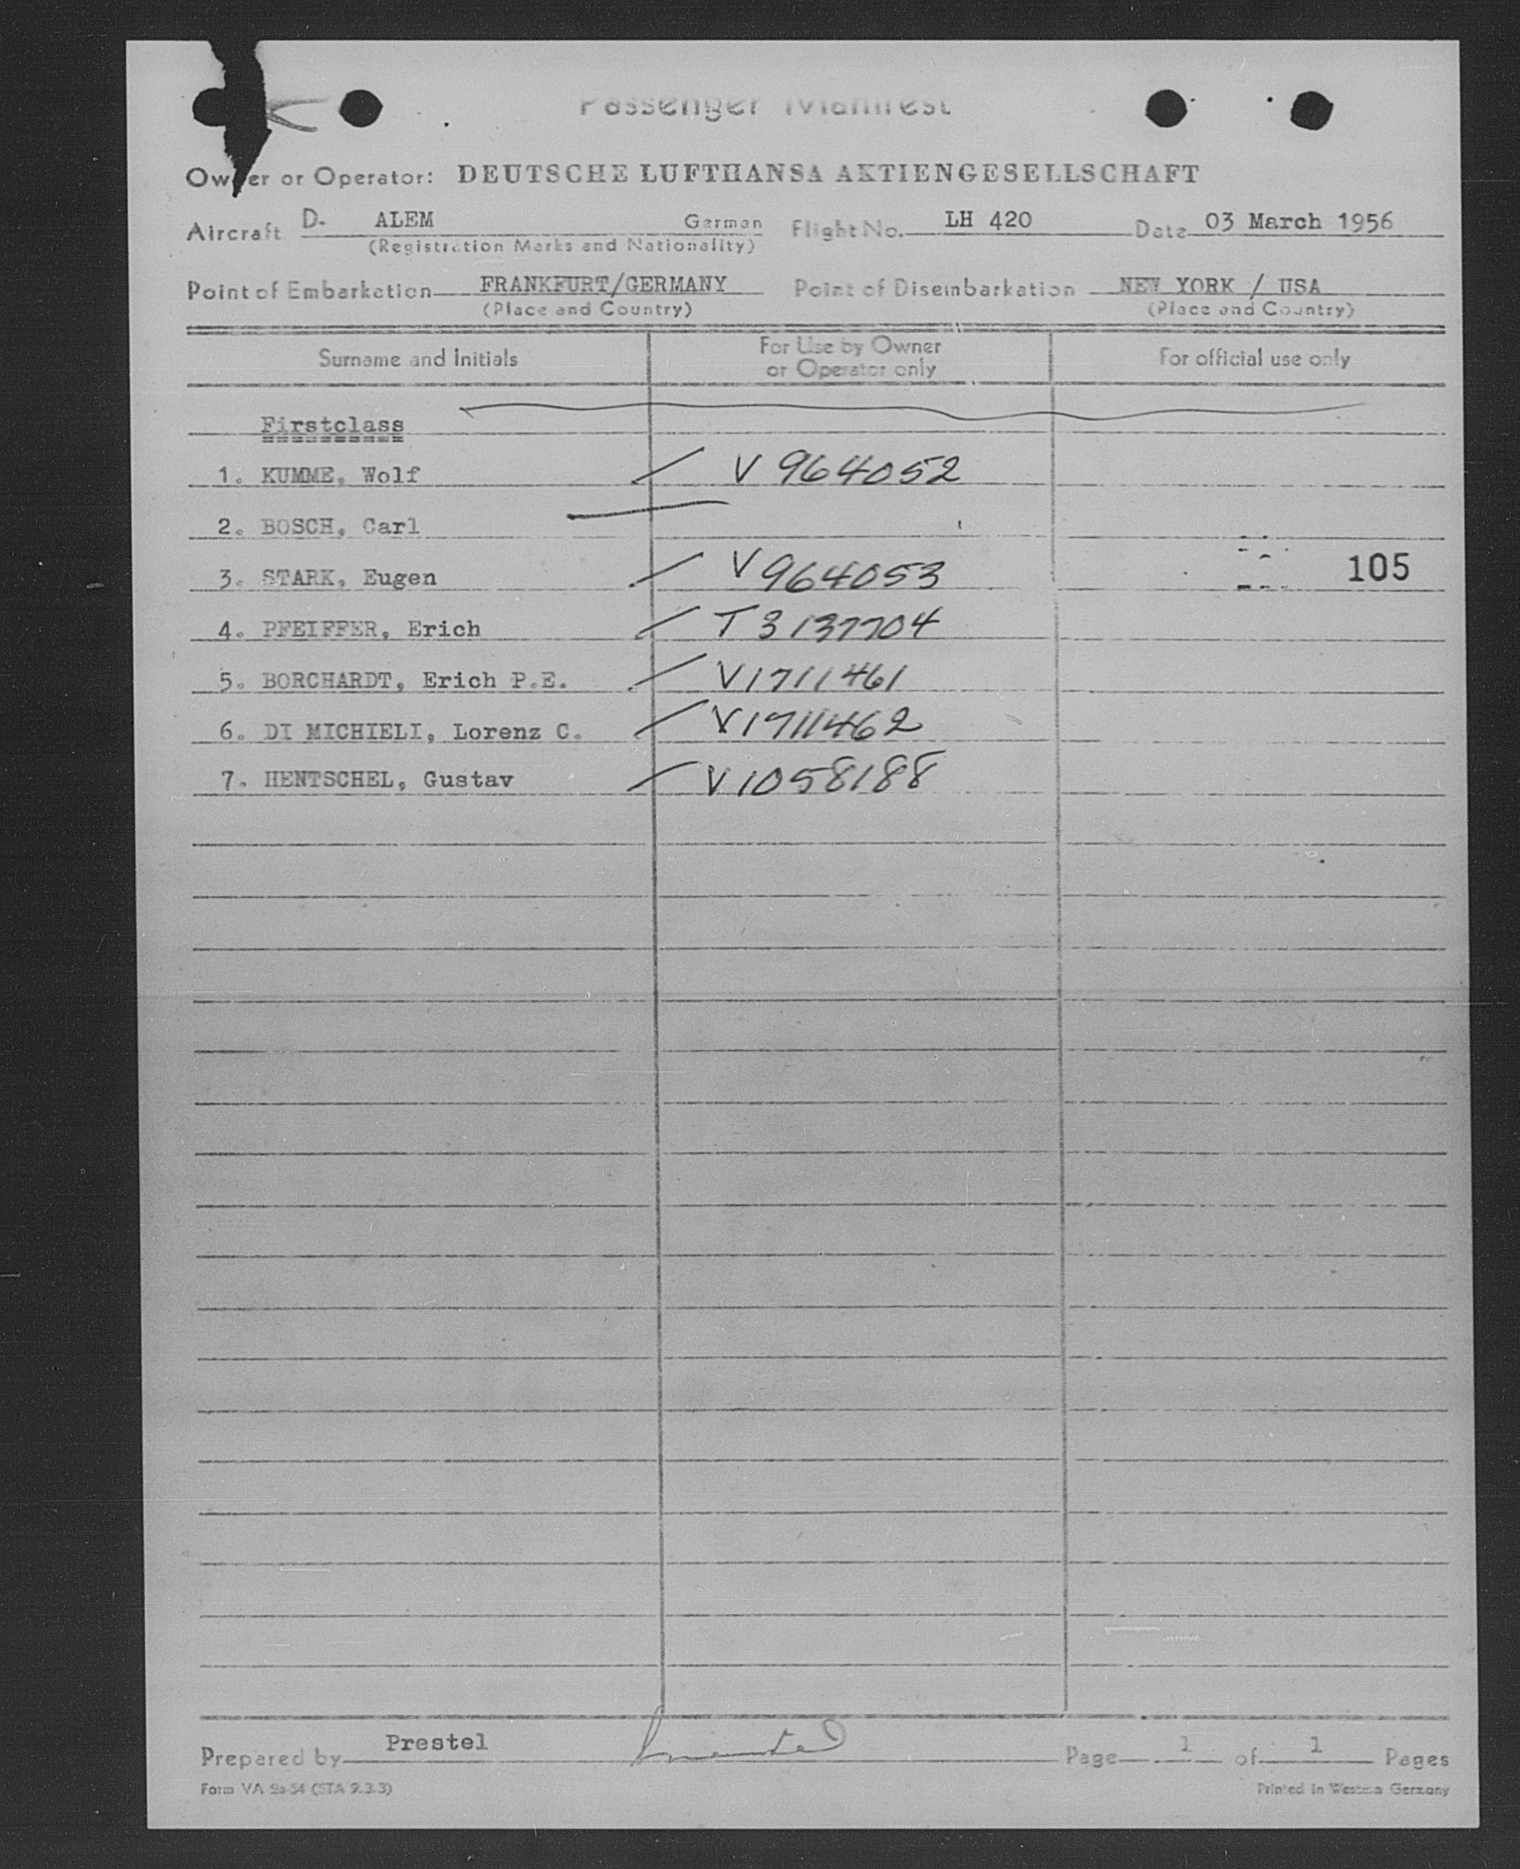 Passenger Manifest
Owner or Operator: DEUTSCHE LUFTHANSA AKTIENGESELLSCHAFT
Aircraft D- ALEM German Flight No. LH 420 Date 03 March 1956
(Registration Marks and Nationality)
Point of Embarkation FRANKFURT/GERMANY Point of Disembarkation NEW YORK / USA
(Place and Country) (Place and Country)
Surname and Initials For Use by Owner or Operator only For official use only
Firstclass
1. KUMME, Wolf V 964052
2. BOSCH, Carl
3. STARK, Eugen V 964053 105
4. PFEIFFER, Erich T 3137704
5. BORCHARDT, Erich P.E. V1711461
6. DI MICHIELI, Lorenz C. V1711462
7. HENTSCHEL, Gustav V1058188
Prepared by Prestel Prestel Page 1 of 1 Pages
Form VA 9a-54 (STA 9.3.3) Printed in Western Germany